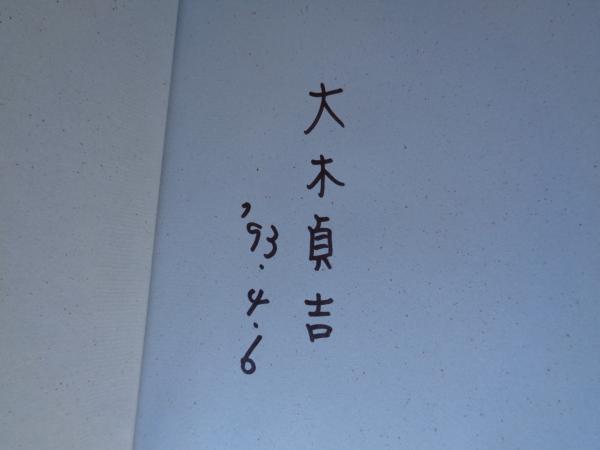 大木貞吉
'93.4.6